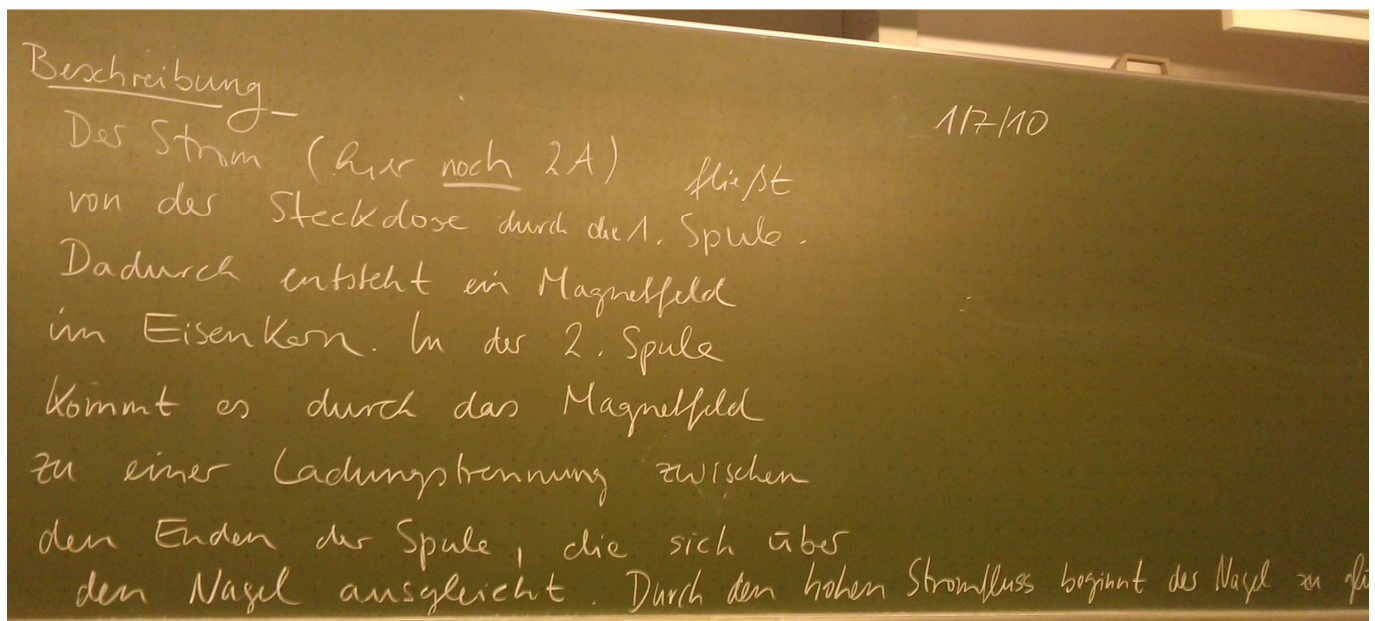 Beschreibung
1/7/10
Der Strom (hier noch 2A) fließt
von der Steckdose durch die 1. Spule.
Dadurch entsteht ein Magnetfeld
im Eisenkern. In der 2. Spule
kommt es durch das Magnetfeld
zu einer Ladungstrennung zwischen
den Enden der Spule, die sich über
den Nagel ausgleicht. Durch den hohen Stromfluss beginnt der Nagel zu